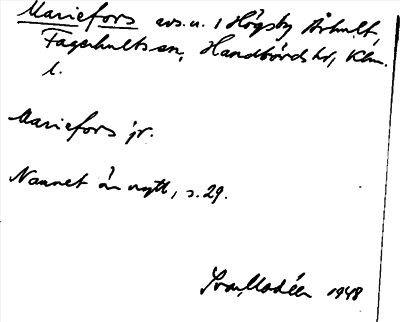 Mariefors avs.u. 1 Högsby Århult,
Fagerhults sn, Handbörds hd, Kalm.
l.
Mariefors jr.
Namnet är nytt, s. 29.
Ivar Modéer 1948